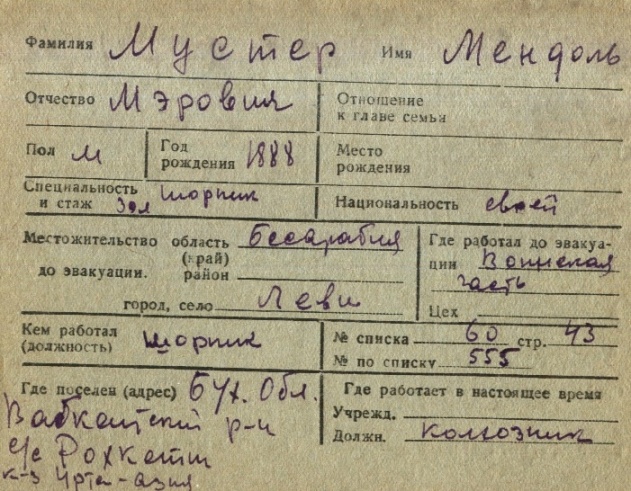 Фамилия Мустер Имя Мендоль
Отчество Мэрович Отношение к главе семьи
Пол М Год рождения 1888 Место рождения
Специальность и стаж 30л шорник Национальность еврей
Местожительство до эвакуации. область (край) Бессарабия
район
город, село Леви
Где работал до эвакуации Воинская часть
Цех
Кем работал (должность) шорник № списка 60 стр. 43
№ по списку 555
Где поселен (адрес) Бух. Обл.
Вабкентский р-н
с/с Рохкети
к-з Урта-азия
Где работает в настоящее время
Учрежд.
Должн. колхозник